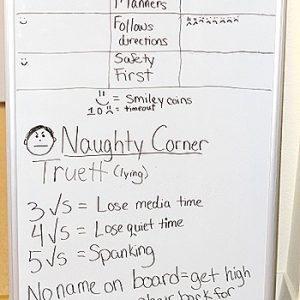 Manners
Follows
directions
Safety
First
= Smiley coins
10 = timeout
Naughty Corner
Truett (lying)
3 √s = Lose media time
4 √s = Lose quiet time
5 √s = Spanking
No name on board=get high
back for